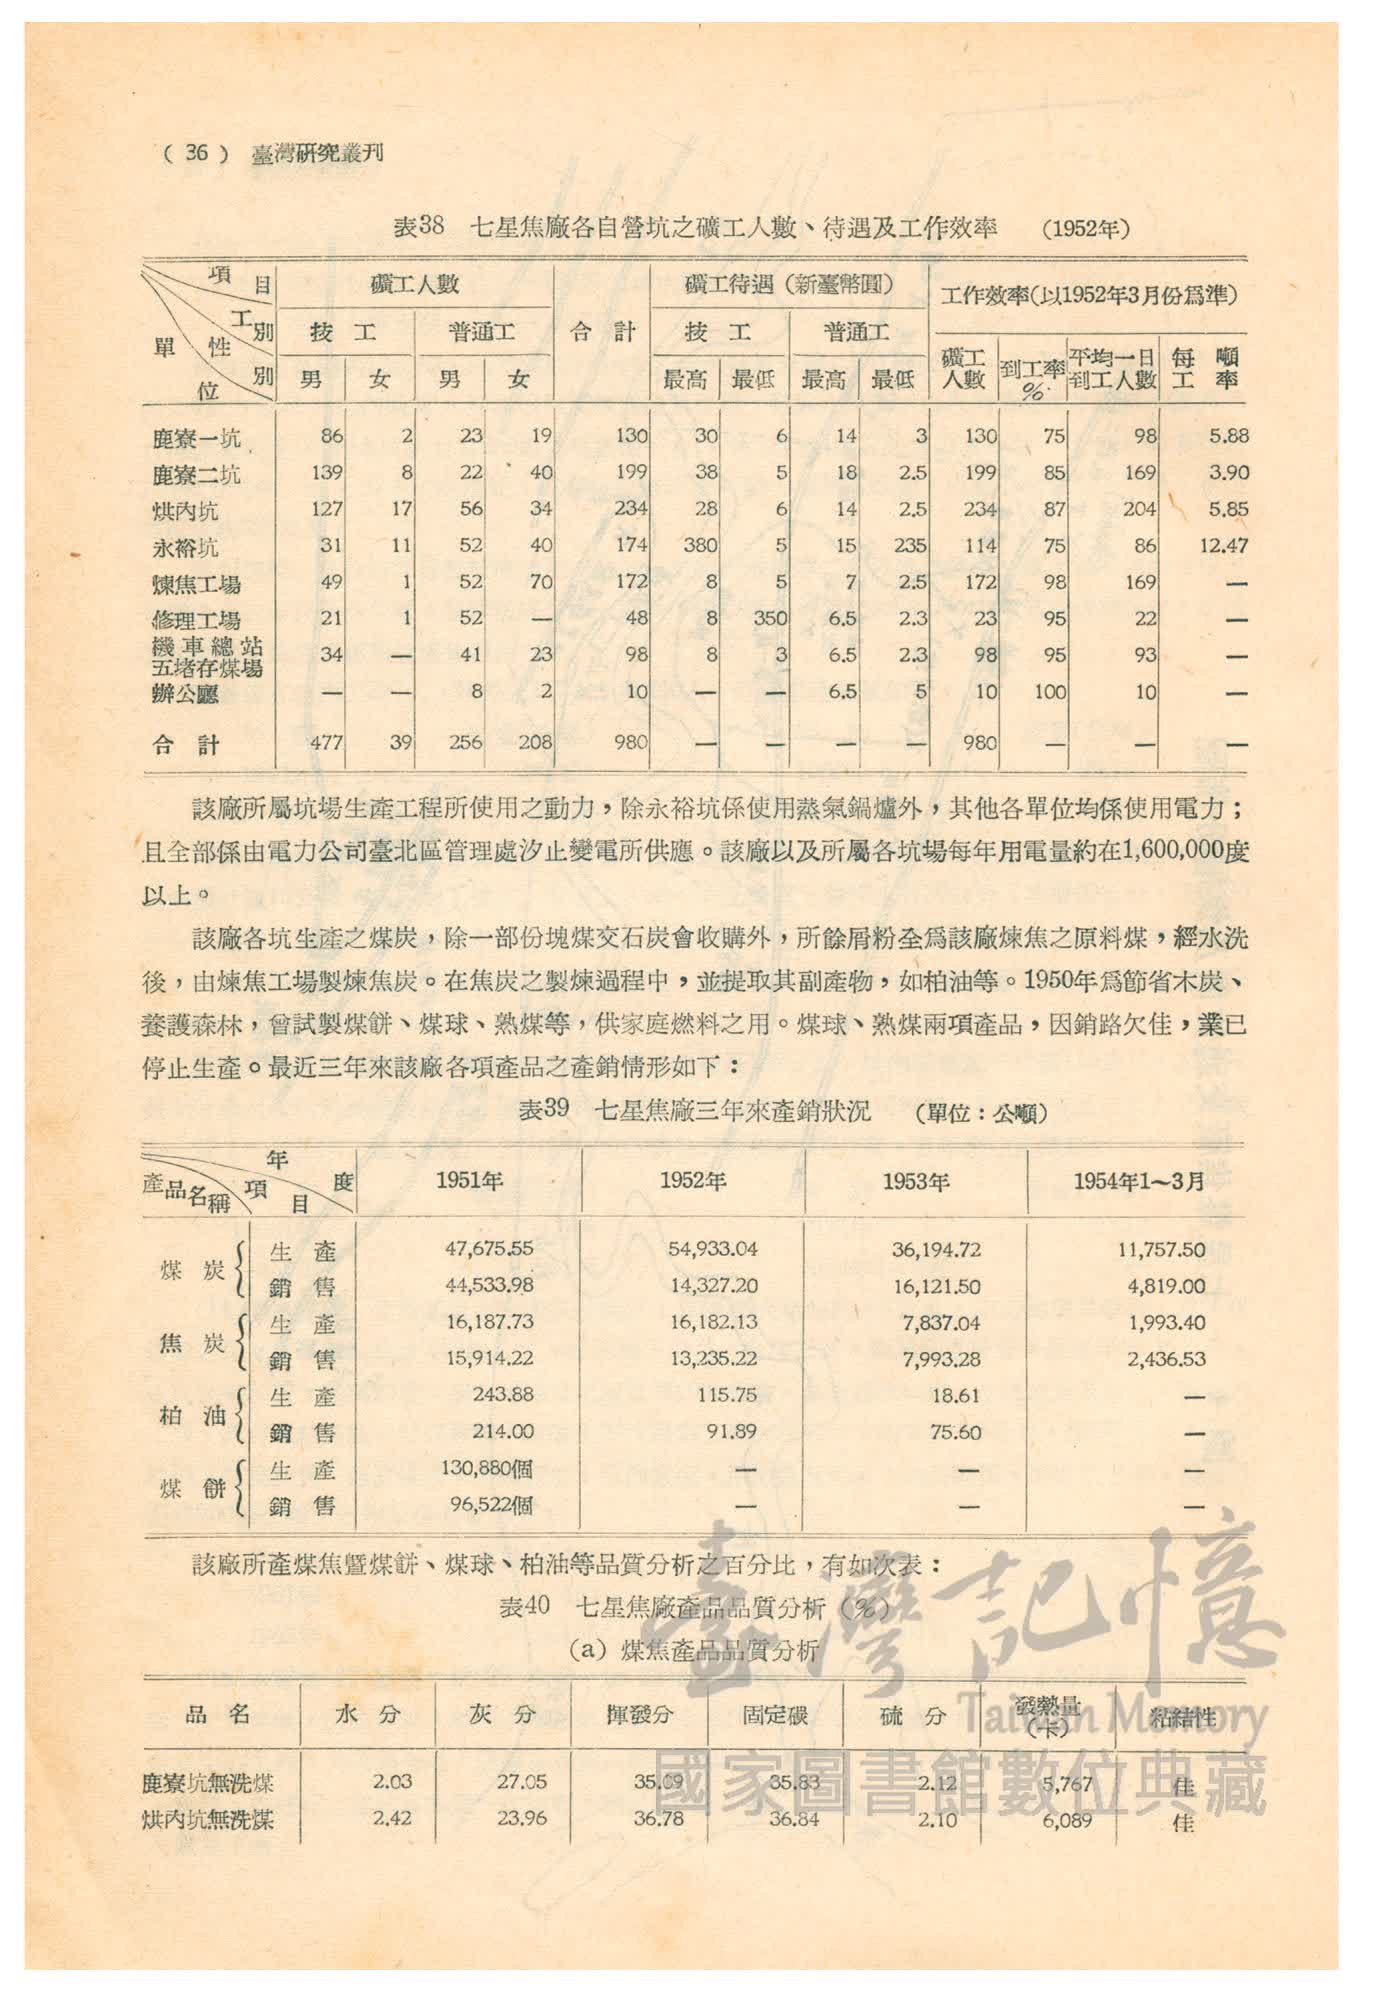 ( 36 ) 臺灣研究叢刊
表38 七星焦廠各自營坑之礦工人數、待遇及工作效率 (1952年)
項目 礦工人數 合計 礦工待遇(新臺幣圓) 工作效率(以1952年3月份爲準)
工別 技工 普通工 技工 普通工 礦工人數 到工率% 平均一日到工人數 每噸工率
單位 性別 男 女 男 女 最高 最低 最高 最低
鹿寮一坑 86 2 23 19 130 30 6 14 3 130 75 98 5.88
鹿寮二坑 139 8 22 40 199 38 5 18 2.5 199 85 169 3.90
烘內坑 127 17 56 34 234 28 6 14 2.5 234 87 204 5.85
永裕坑 31 11 52 40 174 380 5 15 235 114 75 86 12.47
煉焦工場 49 1 52 70 172 8 5 7 2.5 172 98 169 —
修理工場 21 1 52 — 48 8 350 6.5 2.3 23 95 22 —
機車總站
五堵存煤場 34 — 41 23 98 8 3 6.5 2.3 98 95 93 —
辦公廳 — — 8 2 10 — — 6.5 5 10 100 10 —
合計 477 39 256 208 980 — — — — 980 — — —
該廠所屬坑場生產工程所使用之動力，除永裕坑係使用蒸氣鍋爐外，其他各單位均係使用電力；
且全部係由電力公司臺北區管理處汐止變電所供應。該廠以及所屬各坑場每年用電量約在1,600,000度
以上。
該廠各坑生產之煤炭，除一部份塊煤交石炭會收購外，所餘屑粉全爲該廠煉焦之原料煤，經水洗
後，由煉焦工場製煉焦炭。在焦炭之製煉過程中，並提取其副產物，如柏油等。1950年爲節省木炭、
養護森林，曾試製煤餅、煤球、熟煤等，供家庭燃料之用。煤球、熟煤兩項產品，因銷路欠佳，業已
停止生產。最近三年來該廠各項產品之產銷情形如下：
表39 七星焦廠三年來產銷狀況 (單位：公噸)
產品名稱 項目 年度 1951年 1952年 1953年 1954年1～3月
煤炭 生產 47,675.55 54,933.04 36,194.72 11,757.50
銷售 44,533.98 14,327.20 16,121.50 4,819.00
焦炭 生產 16,187.73 16,182.13 7,837.04 1,993.40
銷售 15,914.22 13,235.22 7,993.28 2,436.53
柏油 生產 243.88 115.75 18.61 —
銷售 214.00 91.89 75.60 —
煤餅 生產 130,880個 — — —
銷售 96,522個 — — —
該廠所產煤焦暨煤餅、煤球、柏油等品質分析之百分比，有如次表：
表40 七星焦廠產品品質分析(%)
(a) 煤焦產品品質分析
品名 水分 灰分 揮發分 固定碳 硫分 發熱量(卡) 粘結性
鹿寮坑無洗煤 2.03 27.05 35.09 35.83 2.12 5,767 佳
烘內坑無洗煤 2.42 23.96 36.78 36.84 2.10 6,089 佳
臺灣記憶
Taiwan Memory
國家圖書館數位典藏